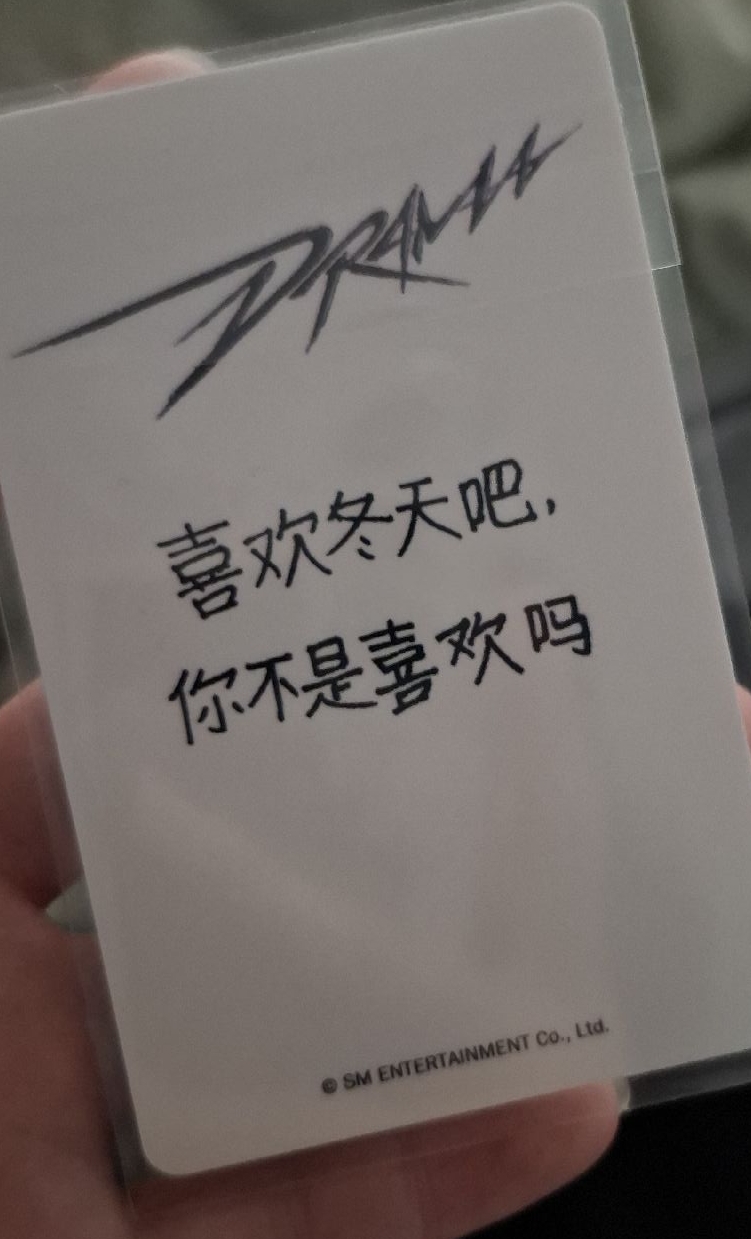 DRAMA
喜欢冬天吧,
你不是喜欢吗
© SM ENTERTAINMENT Co., Ltd.